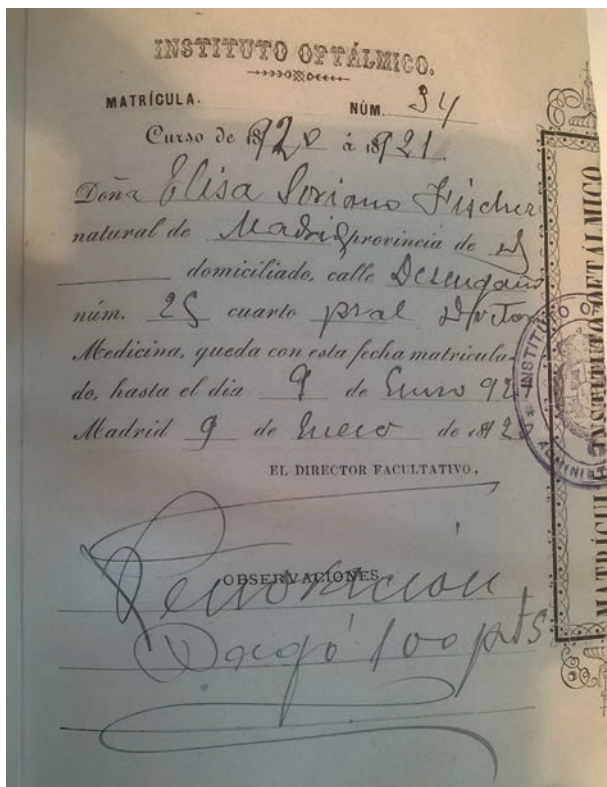 INSTITUTO OFTÁLMICO.
MATRÍCULA. NÚM. 34
Curso de 1920 á 1921.
Doña Elisa Soriano Fischer
natural de Madrid provincia de id
domiciliado, calle Desengaño
núm. 25 cuarto pral Doctor
Medicina, queda con esta fecha matricula-
do, hasta el dia 9 de Enero 921
Madrid 9 de Enero de 192
EL DIRECTOR FACULTATIVO,
OBSERVACIONES
Renovación
Pagó 100 pts
INSTITUTO
MATRÍCULA INSTITUTO OFTÁLMICO